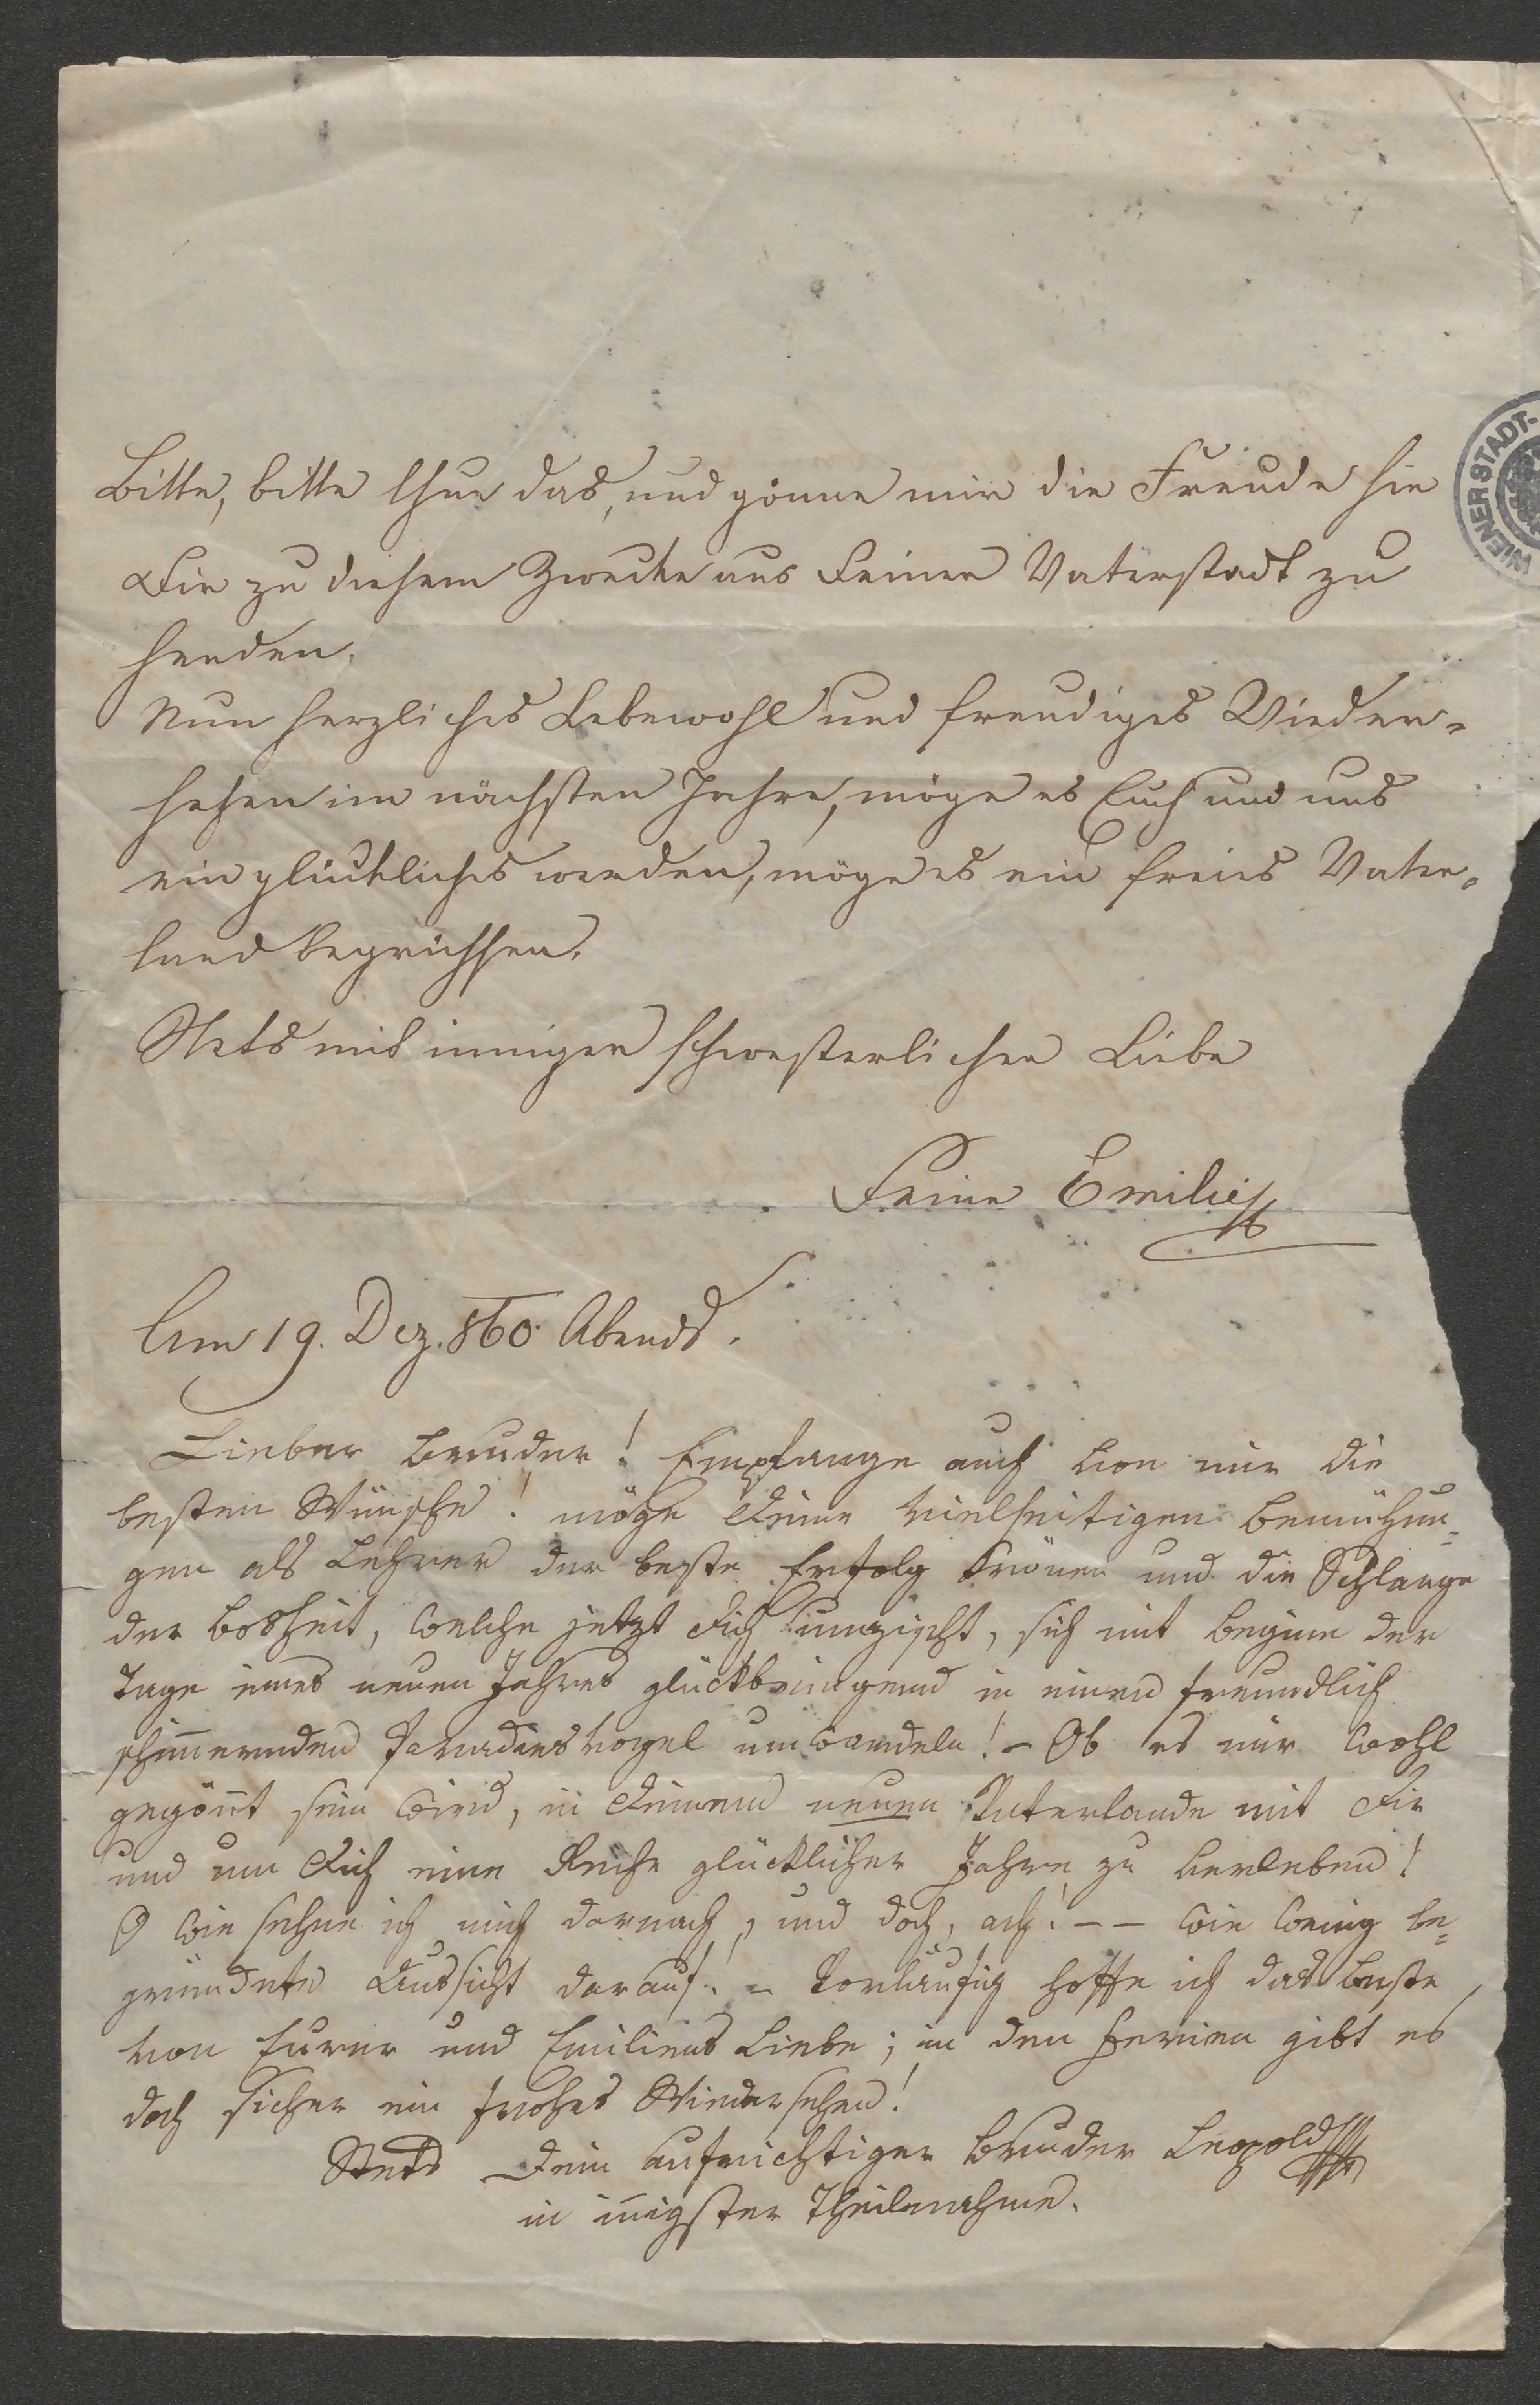 Bitte, bitte thue das, und gönne mir die Freude sie
Dir zu diesem Zwecke aus Deiner Vaterstadt zu
senden.
Nun herzliches Lebewohl und freudiges Wieder-
sehen im nächsten Jahre, möge es Euch und uns
ein glückliches werden, möge es ein freies Vater-
land begrüssen.
Stets mit inniger schwesterlicher Liebe
Deine Emilie
Am 19. Dez. 860. Abends.
Lieber Bruder! Empfange auch von mir die
besten Wünsche! möge Deine vielseitigen Bemühun-
gen als Lehrer der beste Erfolg krönen und die Schlange
der Bosheit, welche jetzt Dich umzischt, sich mit Beginn der
Tage eines neuen Jahres glückbringend in einen freundlich
schimernden Paradiesvogel umwandeln! – Ob es mir wohl
gegönt sein wird, in Deinem neuen Vaterlande mit Dir
und um Dich eine Reihe glücklicher Jahre zu verleben!
O wie sehne ich mich darnach, und doch, ach! – – wie wenig be-
gründete Aussicht darauf! – Vorläufig hoffe ich das Beste
von Eurer und Emiliens Liebe; in den Ferien gibt es
doch sicher ein frohes Wiedersehen!
Stets Dein aufrichtiger Bruder Leopold
in inigster Theilnahme.
WIENER STADT-